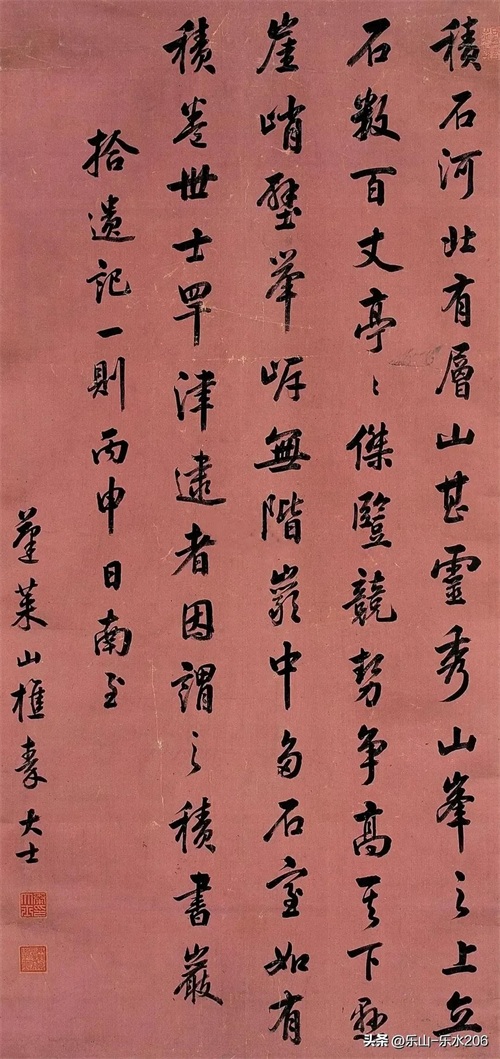 積石河北有層山甚靈秀山峯之上立
石數百丈亭〻傑豎競勢争高其下懸
崖峭壁舉岸無階巖中多石室如有
積卷世士罕津逮者因謂之積書巖
拾遺記一則丙申日南至
蓬莱山樵秦大士
头条 @乐山-乐水206